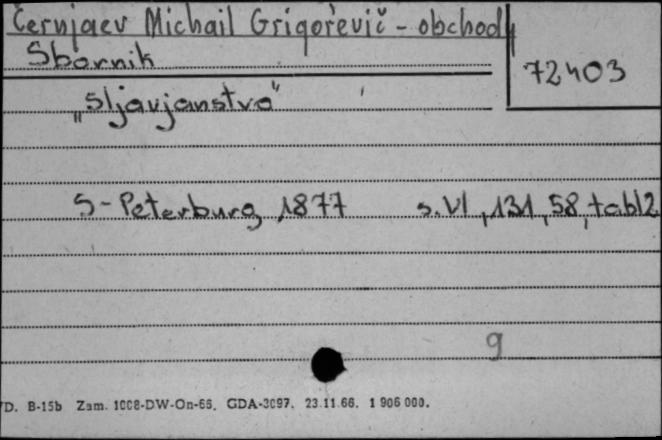 Černjaev Michail Grigor'evič - obchody
Sbornik
72403
„Sljavjanstvo"
S-Peterburg, 1877 s. VI, 131, 58, tabl 2
9
D. B-15b Zam. 1008-DW-On-66. GDA-3097. 23.11.66. 1 906 000.